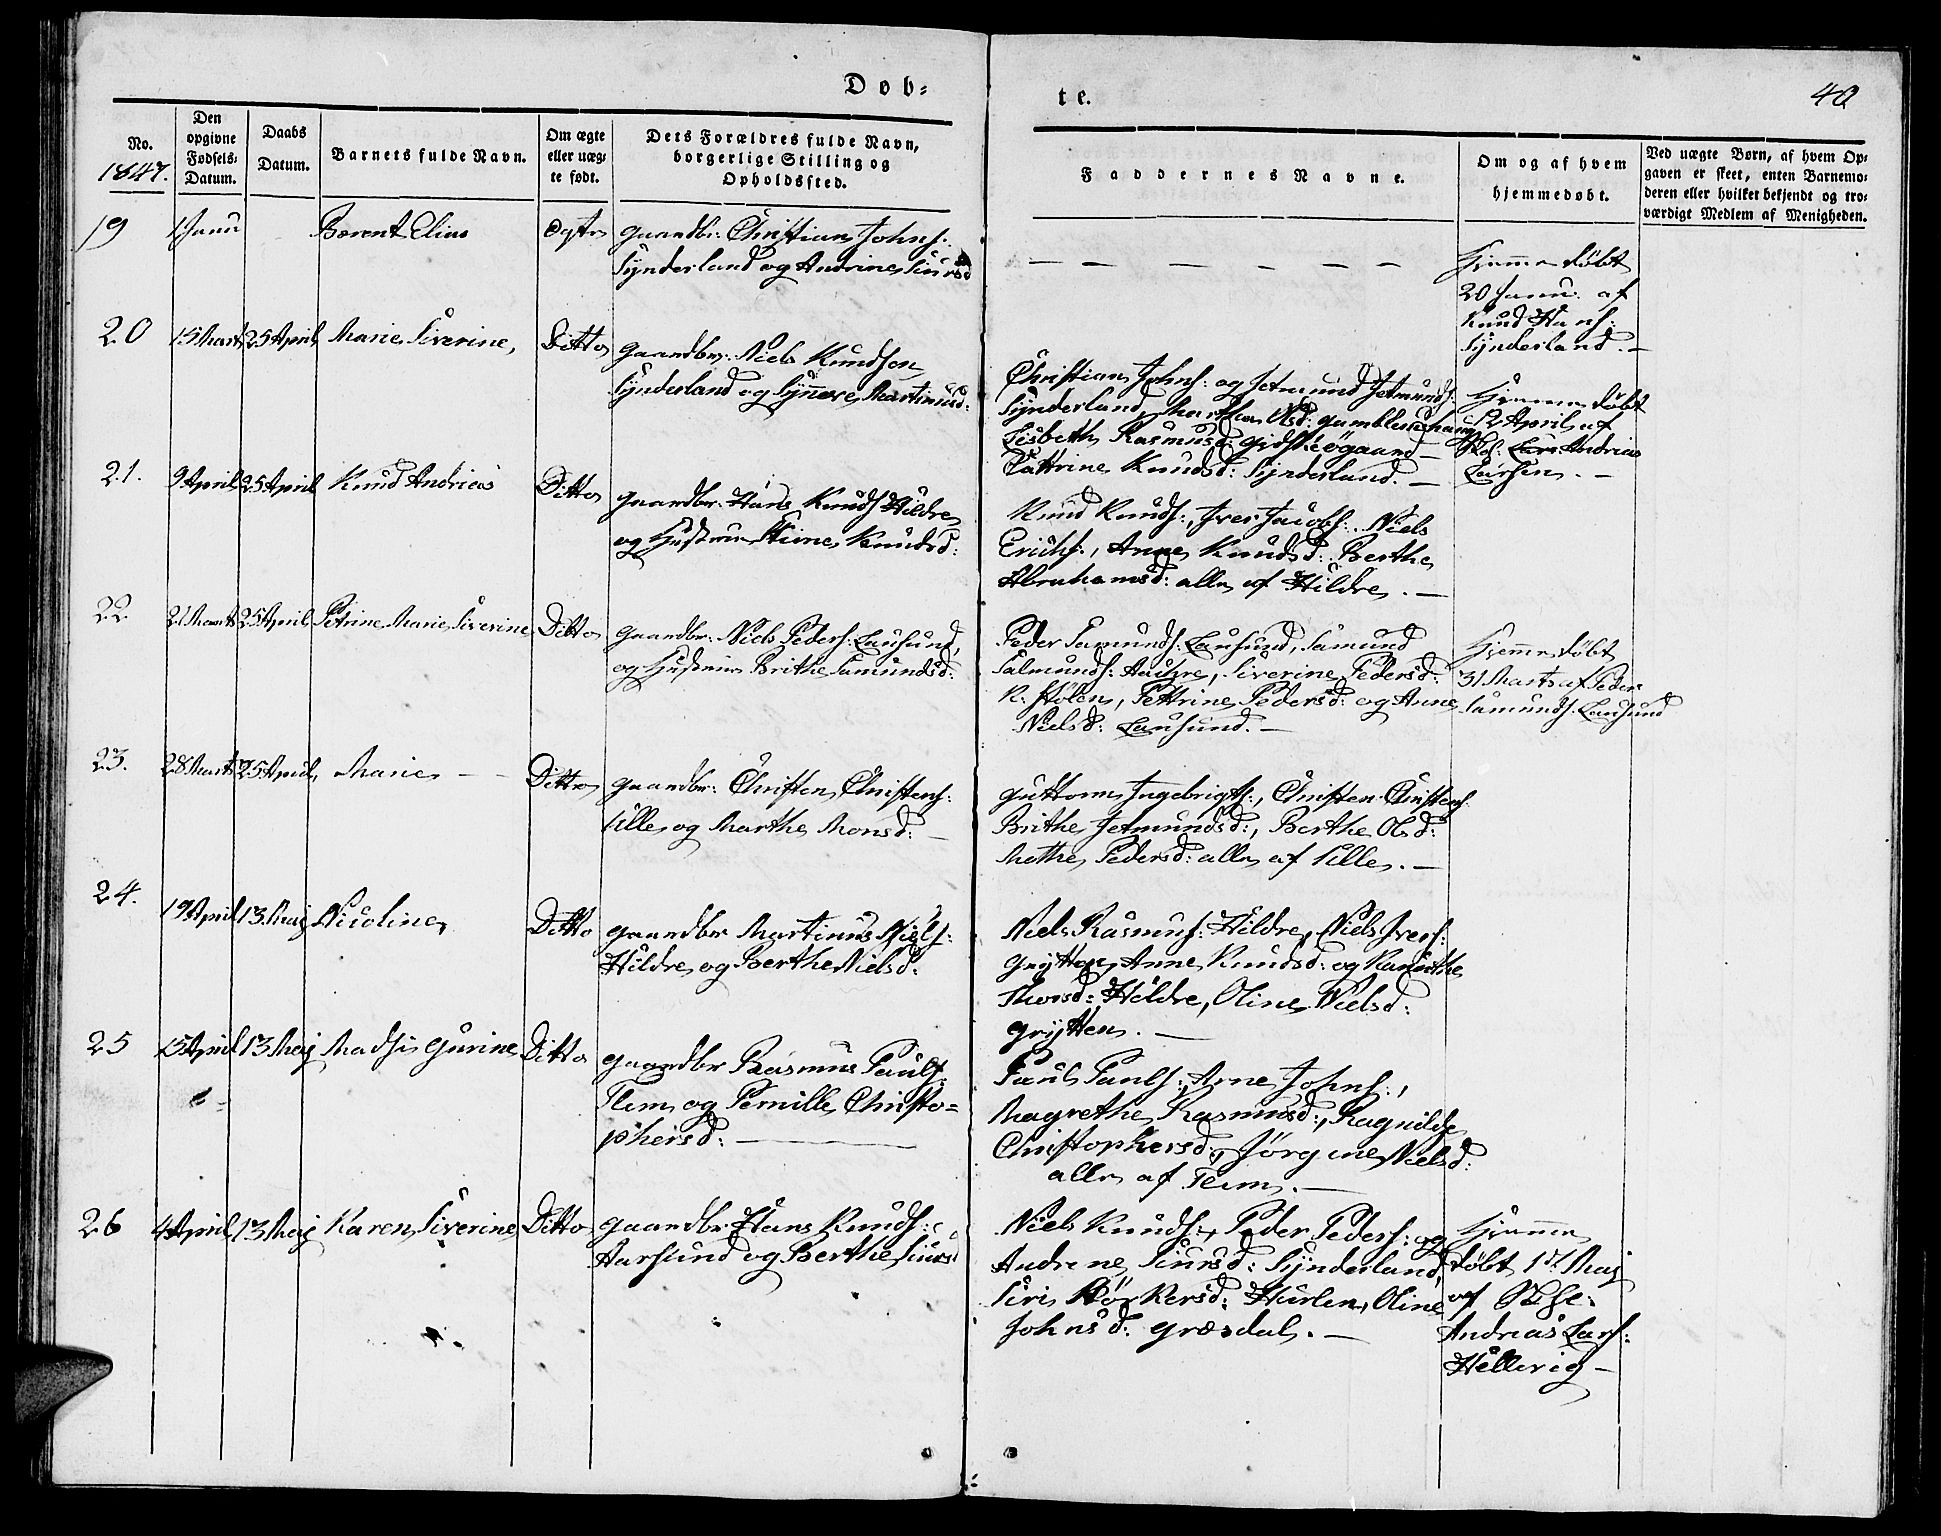 Døb=
te.
40
No.
1847.
Den
opgivne
Fødsels=
Datum.
Daabs
Datum.
Barnets fulde Navn.
Om ægte
eller uæg=
te født.
Dets Forældres fulde Navn,
borgerlige Stilling og
Opholdssted.
Faddernes Navne.
Om og af hvem
hjemmedøbt.
Ved uægte Børn, af hvem Op=
gaven er skeet, enten Barnemo=
deren eller hvilket bekjendt og tro=
værdigt Medlem af Menigheden.
19
1 Janu
Berent Elias
Ægte
Gaardbr: Christian Johns:
Synderland og Andrine Siursd
— — — — — — —
Hjemme døbt
20 Janu: af
Knud Hans:
Synderland. —
20
15 Marts
25 April
Marie Siverine,
Ditto
Gaardbr: Niels Knudsen
Synderland og Synneve Martinusd:
Christian Johns: og Jetmund Jetmunds:
Synderland, Marthe Olsd: Gamblesuhaug
Lisbeth Rasmusd: Gidskeøgaard —
Cattrine Knudsd: Synderland. —
Hjemme døbt
12 April af
Skol: Lars Andreas
Larsen. —
21.
9 April
25 April
Knud Andreas
Ditto
Gaardbr: Hans Knuds Hildre
og Hustrue Stine Knudsd:
Knud Knuds:, Iver Jacobs:, Niels
Erichs:, Anne Knudsd: Berthe
Abrahamsd: alle af Hildre. —
22
21 Marts
25 April
Petrine Marie Siverine
Ditto
Gaardbr: Niels Peders: Lausund,
og Hustrue Brithe Samundsd:
Peder Samunds: Lausund, Samund
Salmunds: Houkre, Siverine Pedersd:
K: stølen, Pettrine Pedersd: og Anne
Nielsd: Lausund. —
Hjemme døbt
31 Marts af Peder
Samunds. Lausund
23.
28 Marts
25 April
Marie — —
Ditto
Gaardbr: Christen Christens:
Ulle og Marthe Monsd: —
Guttorm Ingebrigts:, Christen Christens:
Brithe Jetmundsd:, Berthe Olsd:
Methe Pedersd: alle af Ulle. —
24.
19 April
13 Maj
Nicoline
Ditto
Gaardbr Martinus Niels:
Hildre og Berthe Nielsd:
Niels Rasmus: Hildre, Niels Ivers:
Grytten, Anne Knudsd: og
Thorsd: Hildre, Oline Nielsd:
Grytten. —
25
15 April
13 Maj
Madsi Gurine
Ditto
Gaardbr Rasmus Pauls
Flem og Pernille Christo=
phersd: —
Pauls Pauls:, Arne Johns:,
Magrethe Rasmusd:, Ragnilde
Christophersd:, Jørgine Nielsd:
alle af Flem. —
26
4 April
13 Maj
Karen Siverine
Ditto
Gaardbr Hans Knuds:
Harsund og Berthe Siursd
Niels Knuds:, Peder Peders: og
Andrine Siursd: Synderland,
Siri Børkersd: Hurlen, Oline
Johnsd: Græsdal. —
Hjemme
døbt 1st Maj
af Skhl:
Andreas Lars:
Hellevig —